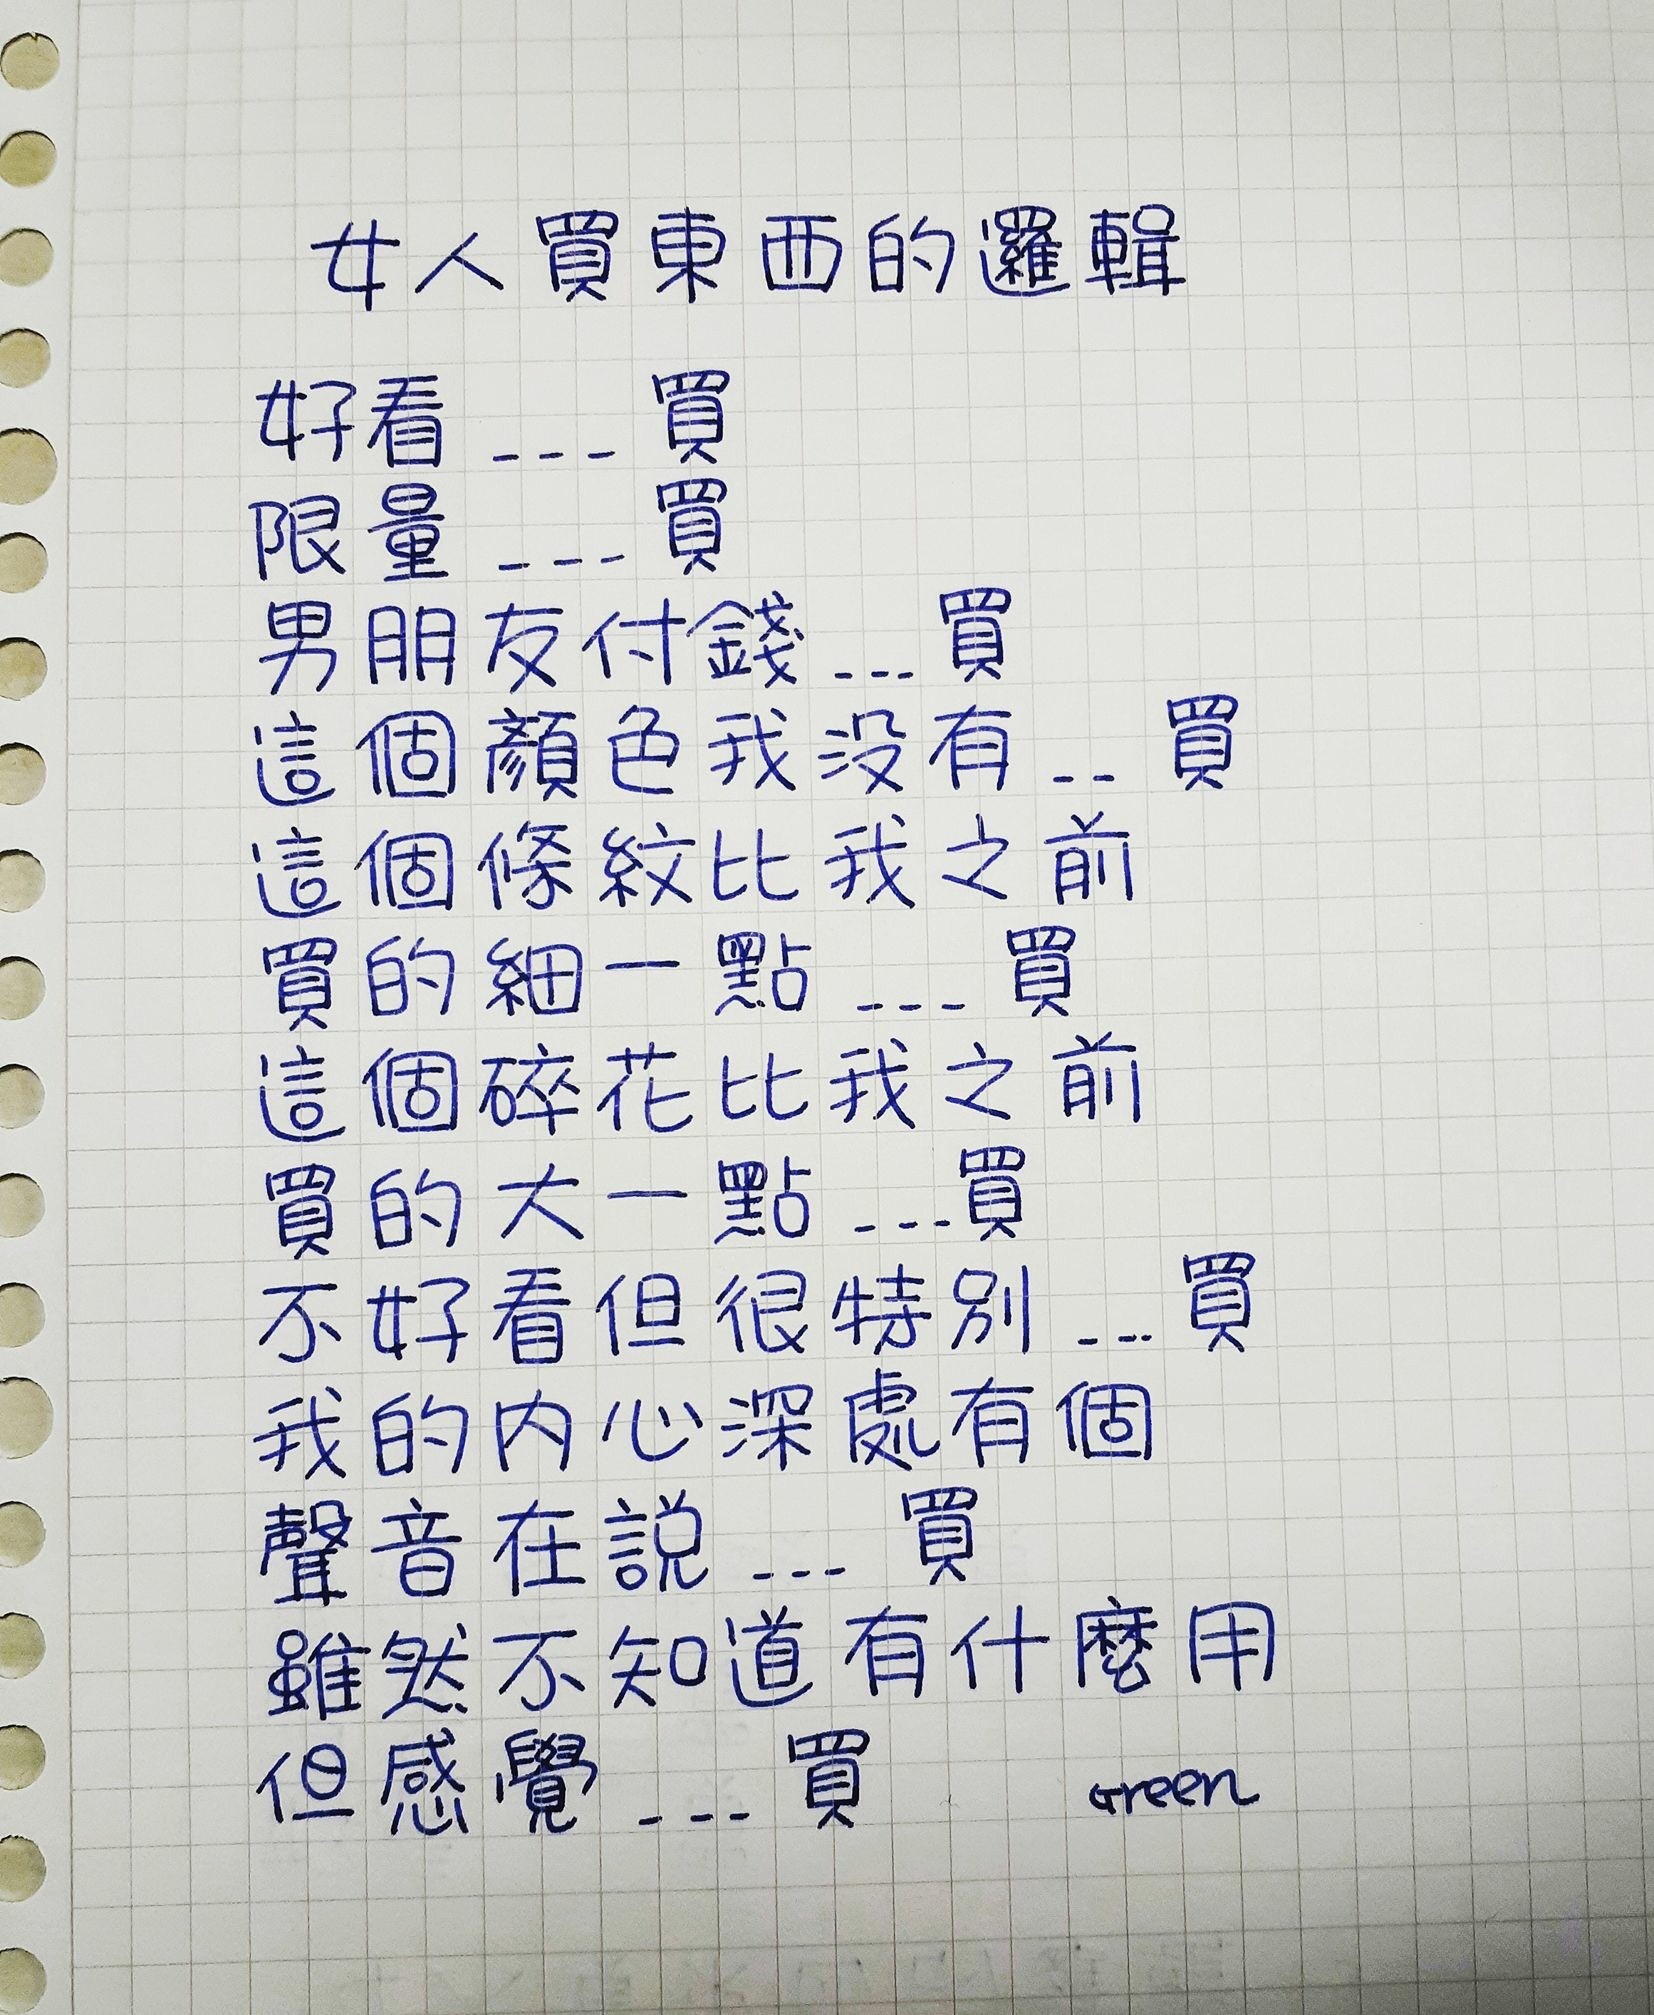 女人買東西的邏輯
好看---買
限量---買
男朋友付錢---買
這個顏色我没有--買
這個條紋比我之前
買的細一點---買
這個碎花比我之前
買的大一點---買
不好看但很特別---買
我的内心深處有個
聲音在説---買
雖然不知道有什麼用
但感覺---買
Green